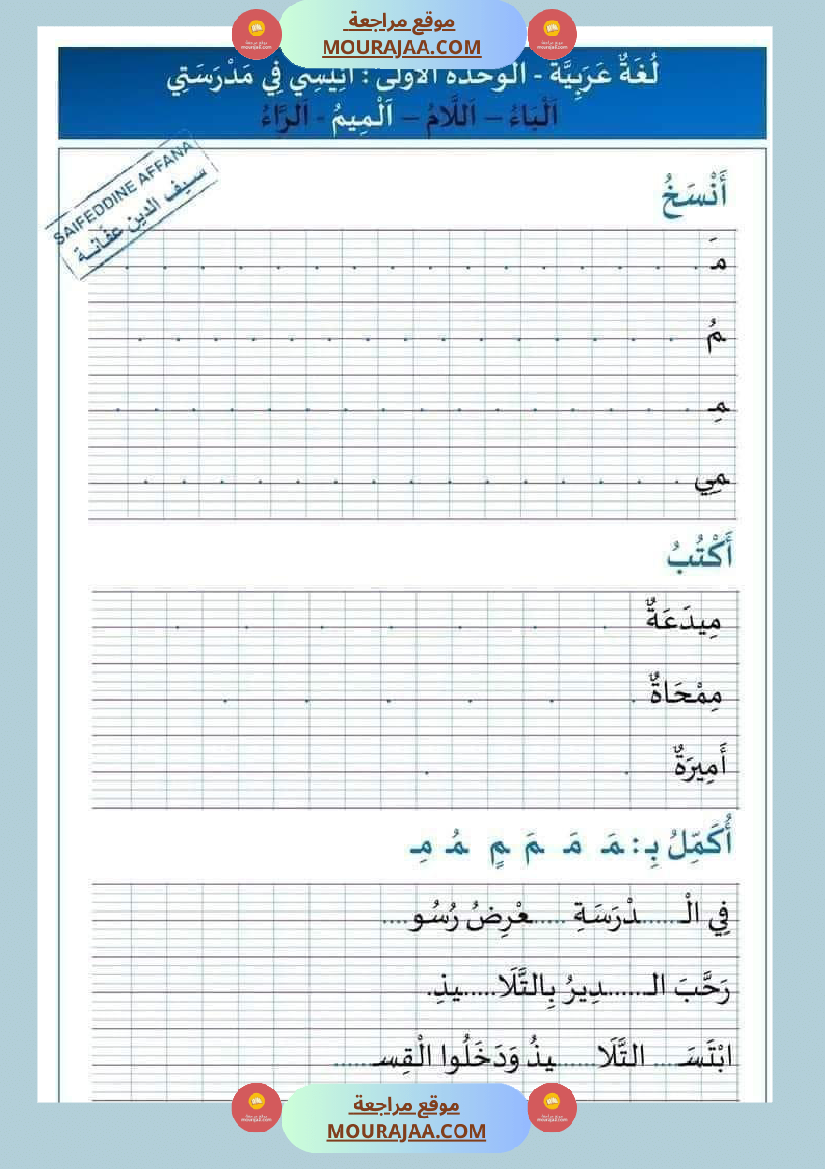 موقع مراجعة
MOURAJAA.COM
لُغَةٌ عَرَبِيَّة - الوحدة الأولى : أَنِيسِي فِي مَدْرَسَتِي
اَلْبَاءُ – اَللَّامُ – اَلْمِيمُ - اَلرَّاءُ
SAIFEDDINE AFFANA
سيف الدين عفانة
أَنْسَخُ
مَـ
مُ
مِـ
مِي
أَكْتُبُ
مِيدَعَةٌ
مِمْحَاةٌ
أَمِيرَةٌ
أُكَمِّلُ بِـ: مَـ مَـ ـمَ مٍ ـمُ مِـ
فِي الْـ......ـدْرَسَةِ ......ـعْرِضُ رُسُو....
رَحَّبَ الـ.......ـدِيرُ بِالتَّلَا......ـيذِ.
ابْتَسَـ.... التَّلَا.......ـيذُ وَدَخَلُوا الْقِسـ......
موقع مراجعة
MOURAJAA.COM